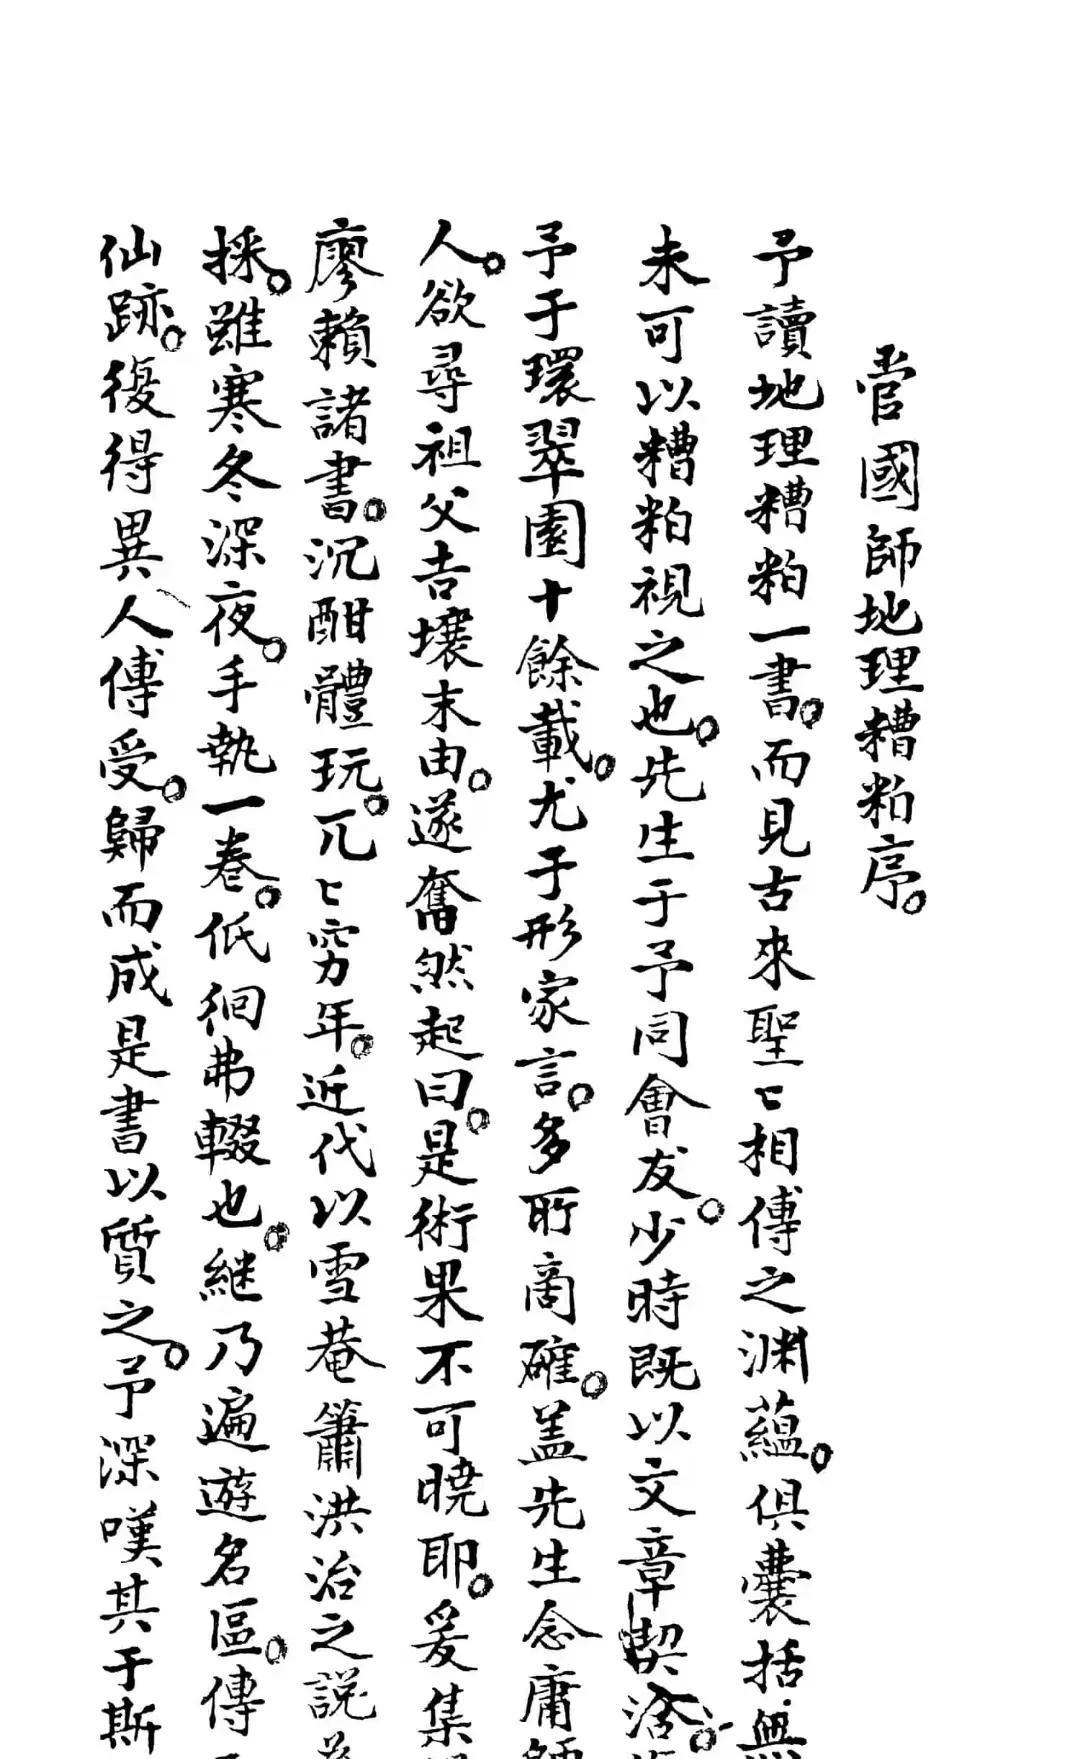 管國師地理糟粕序。
予讀地理糟粕一書。而見古來聖〻相傳之渊蘊。俱囊括無
未可以糟粕視之也。先生于予同會友。少時既以文章契洽。
予于環翠園十餘載。尤于形家言。多所商確。盖先生念庸師
人。欲尋祖父吉壤末由。遂奮然起曰。是術果不可曉耶。爰集
廖賴諸書。沉酣體玩。兀〻窮年。近代以雪菴簫洪治之説
採。雖寒冬深夜。手執一卷。低徊弗輟也。継乃遍遊名區。傳
仙跡。復得異人傳受。歸而成是書以質之。予深嘆其于斯